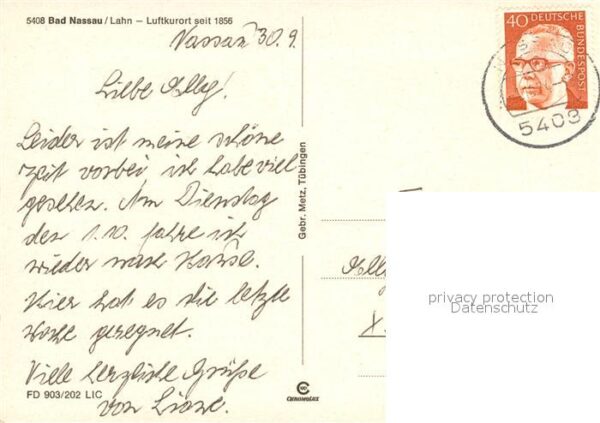 5408 Bad Nassau / Lahn – Luftkurort seit 1856
Nassau 30.9.
Liebe Aelly!
Leider ist meine schöne
Zeit vorbei, ich habe viel
gesehen. Am Dienstag
den 1.10. fahre ich
wieder nach Hause.
Hier hat es die letzte
Woche geregnet.
Viele herzliche Grüße
von
FD 903/202 LIC
Gebr. Metz, Tübingen
CHROMOLUX
40 DEUTSCHE
BUNDESPOST
5408
privacy protection
Datenschutz